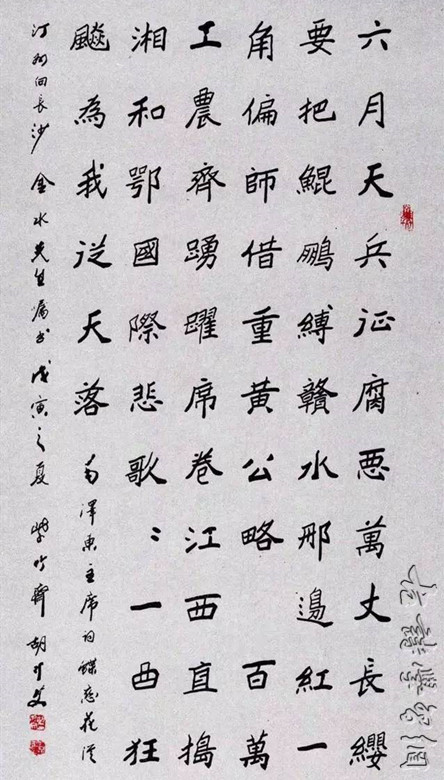 六月天兵征腐惡萬丈長纓
要把鯤鵬縛贛水那邊紅一
角偏師借重黃公略 百萬
工農齊踴躍席卷江西直搗
湘和鄂國際悲歌〻一曲狂
飈為我從天落 毛澤東主席詞蝶戀花從
汀州向長沙 金水先生屬書 戊寅之夏 紫竹齋 胡